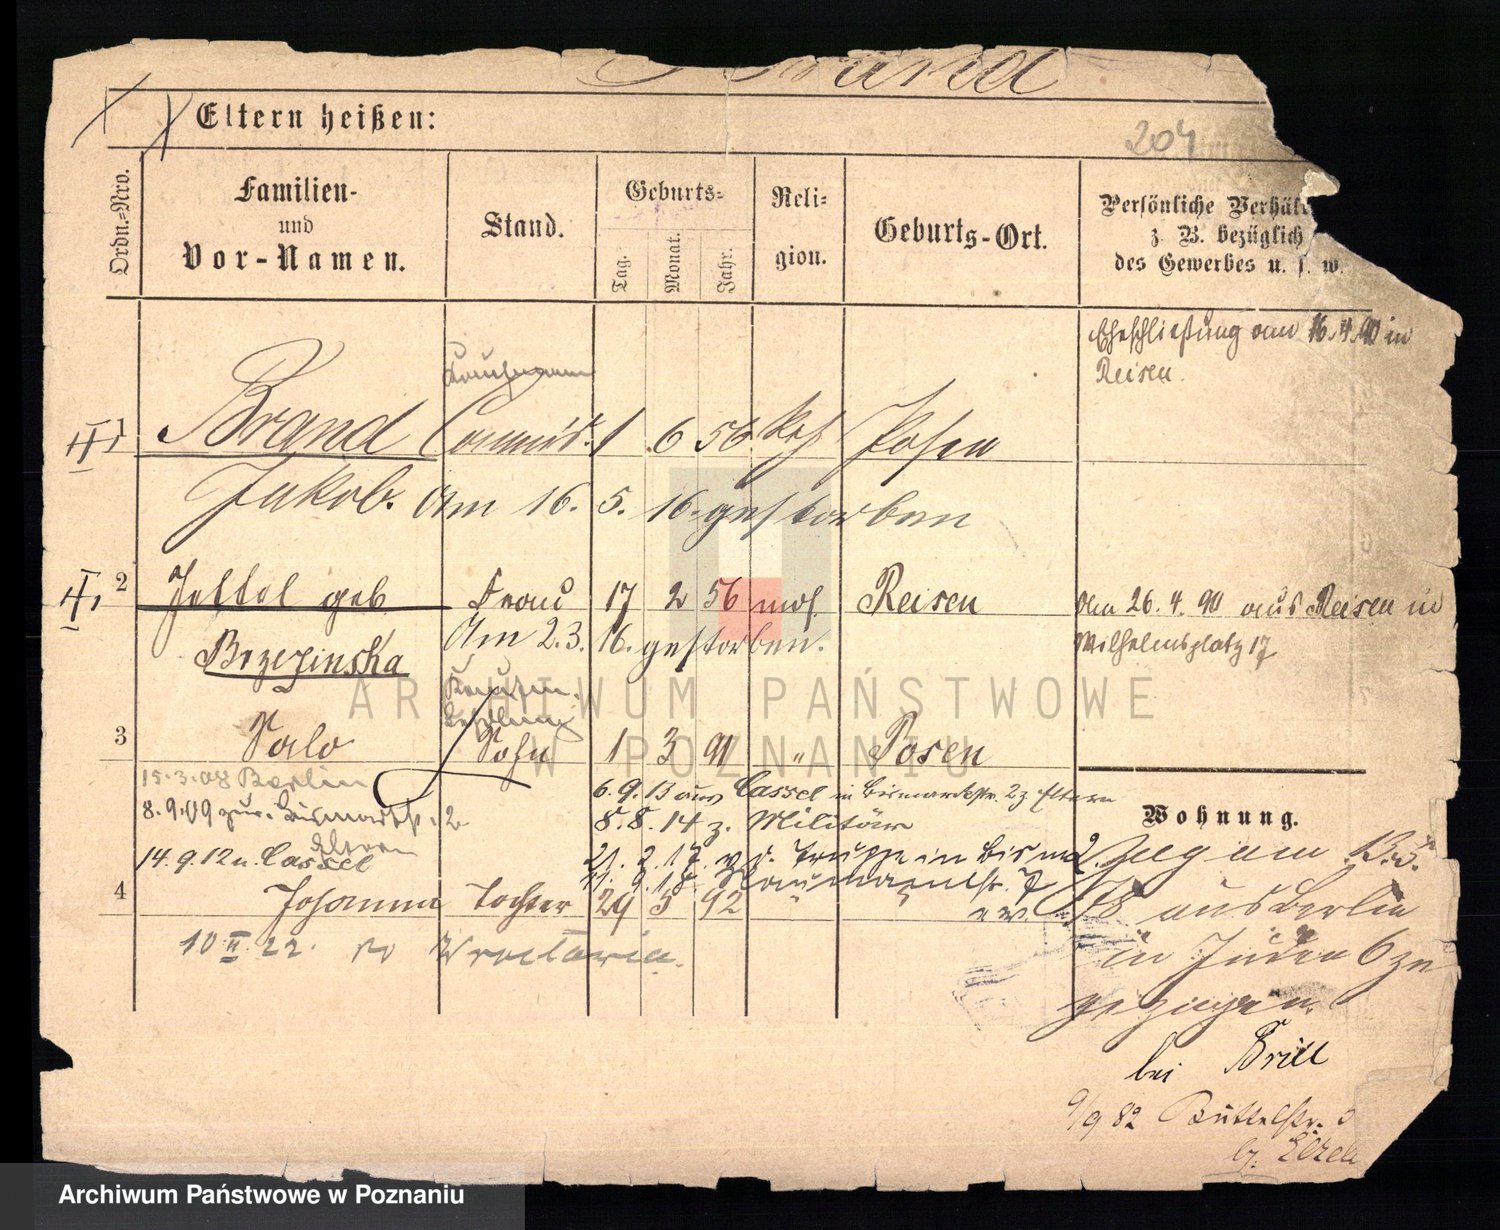 Brand
Eltern heißen:
204
Ordn.=Nro.
Familien-
und
Vor-Namen.
Stand.
Geburts=
Tag.
Monat.
Jahr.
Reli=
gion.
Geburts-Ort.
Persönliche Verhält
z. B. bezüglich
des Gewerbes u. s. w.
Eheschließung am 16.4.90 in
Reisen.
Kaufmann
1 Brand Commis. 1 6 56 Posen
Jakob. Am 16. 5. 16. gestorben
2 Jettel geb Frau 17 2 56 mos. Reisen
Am 26.4.90 aus Reisen in
Wilhelmsplatz 17
Brzezinska Am 2.3.16. gestorben.
3 Salo Sohn 1 3 91 " Posen
15.3.08 Berlin
6.9.13 aus Cassel in Bismarckstr. 2 z Eltern
8.9.09 zur. Bismarckstr. 2
Eltern
8.8.14 z. Militär
14.9.12 n. Cassel
21.2.17. v. d. Truppe in Bism 2.
4 Johanna Tochter 29 5 92 " "
10 II 22. Wrocławia.
Wohnung.
Zug am
78 aus Berlin
in Juden 6 zu
gezogen.
bei Brill
9/9 82 Büttelstr.
ARCHIWUM PAŃSTWOWE
W POZNANIU
Archiwum Państwowe w Poznaniu